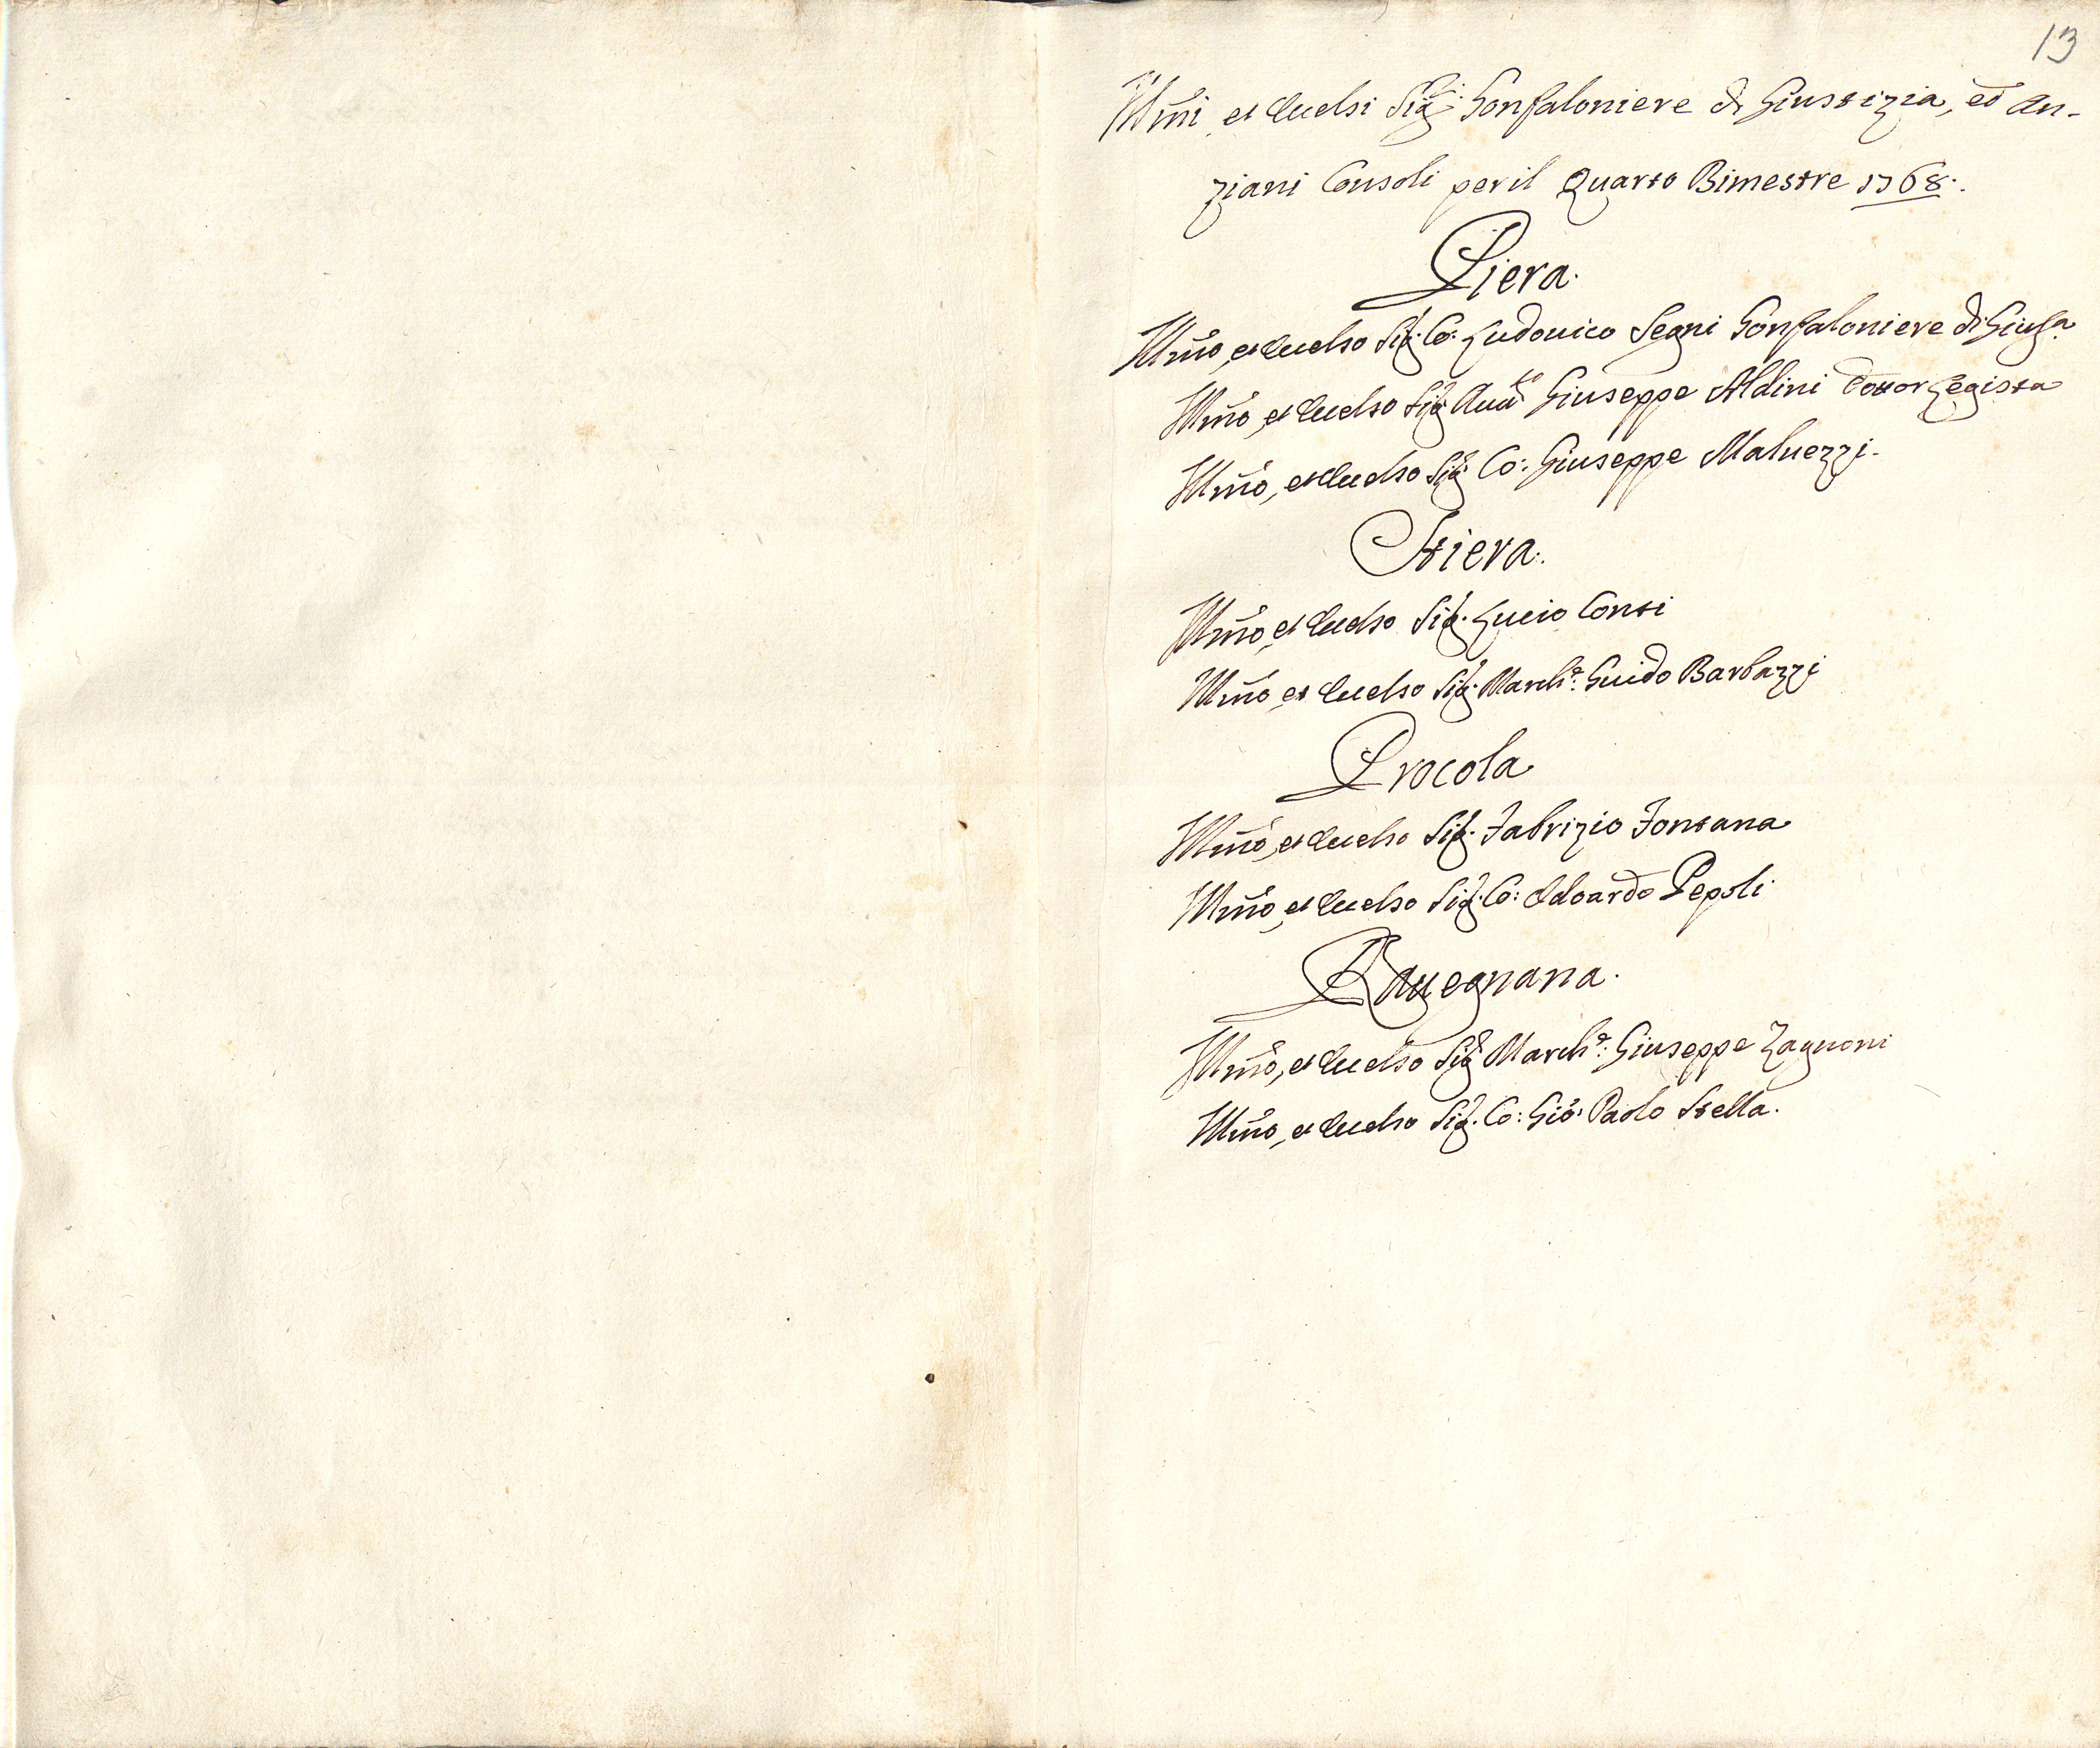 13
Illmi, et Eccelsi Sigri Gonfaloniere di Giustizia, ed An-
ziani Consoli per il Quarto Bimestre 1768.
Piera.
Illmo, et Eccelso Sig. Co. Ludouico Segni Gonfaloniere di Giusa.
Illmo, et Eccelso Sig. Auuto Giuseppe Aldini Dottor Legista
Illmo, et Eccelso Sig. Co: Giuseppe Maluezzi.
Stiera.
Illmo, et Eccelso Sig. Lucio Conti
Illmo, et Eccelso Sig. Marche: Guido Barbazzi
Procola
Illmo, et Eccelso Sig. Fabrizio Fontana
Illmo, et Eccelso Sig. Co: Edoardo Pepoli
Rauegnana.
Illmo, et Eccelso Sig. Marche: Giuseppe Zagnoni
Illmo, et Eccelso Sig. Co: Gio: Paolo Stella.